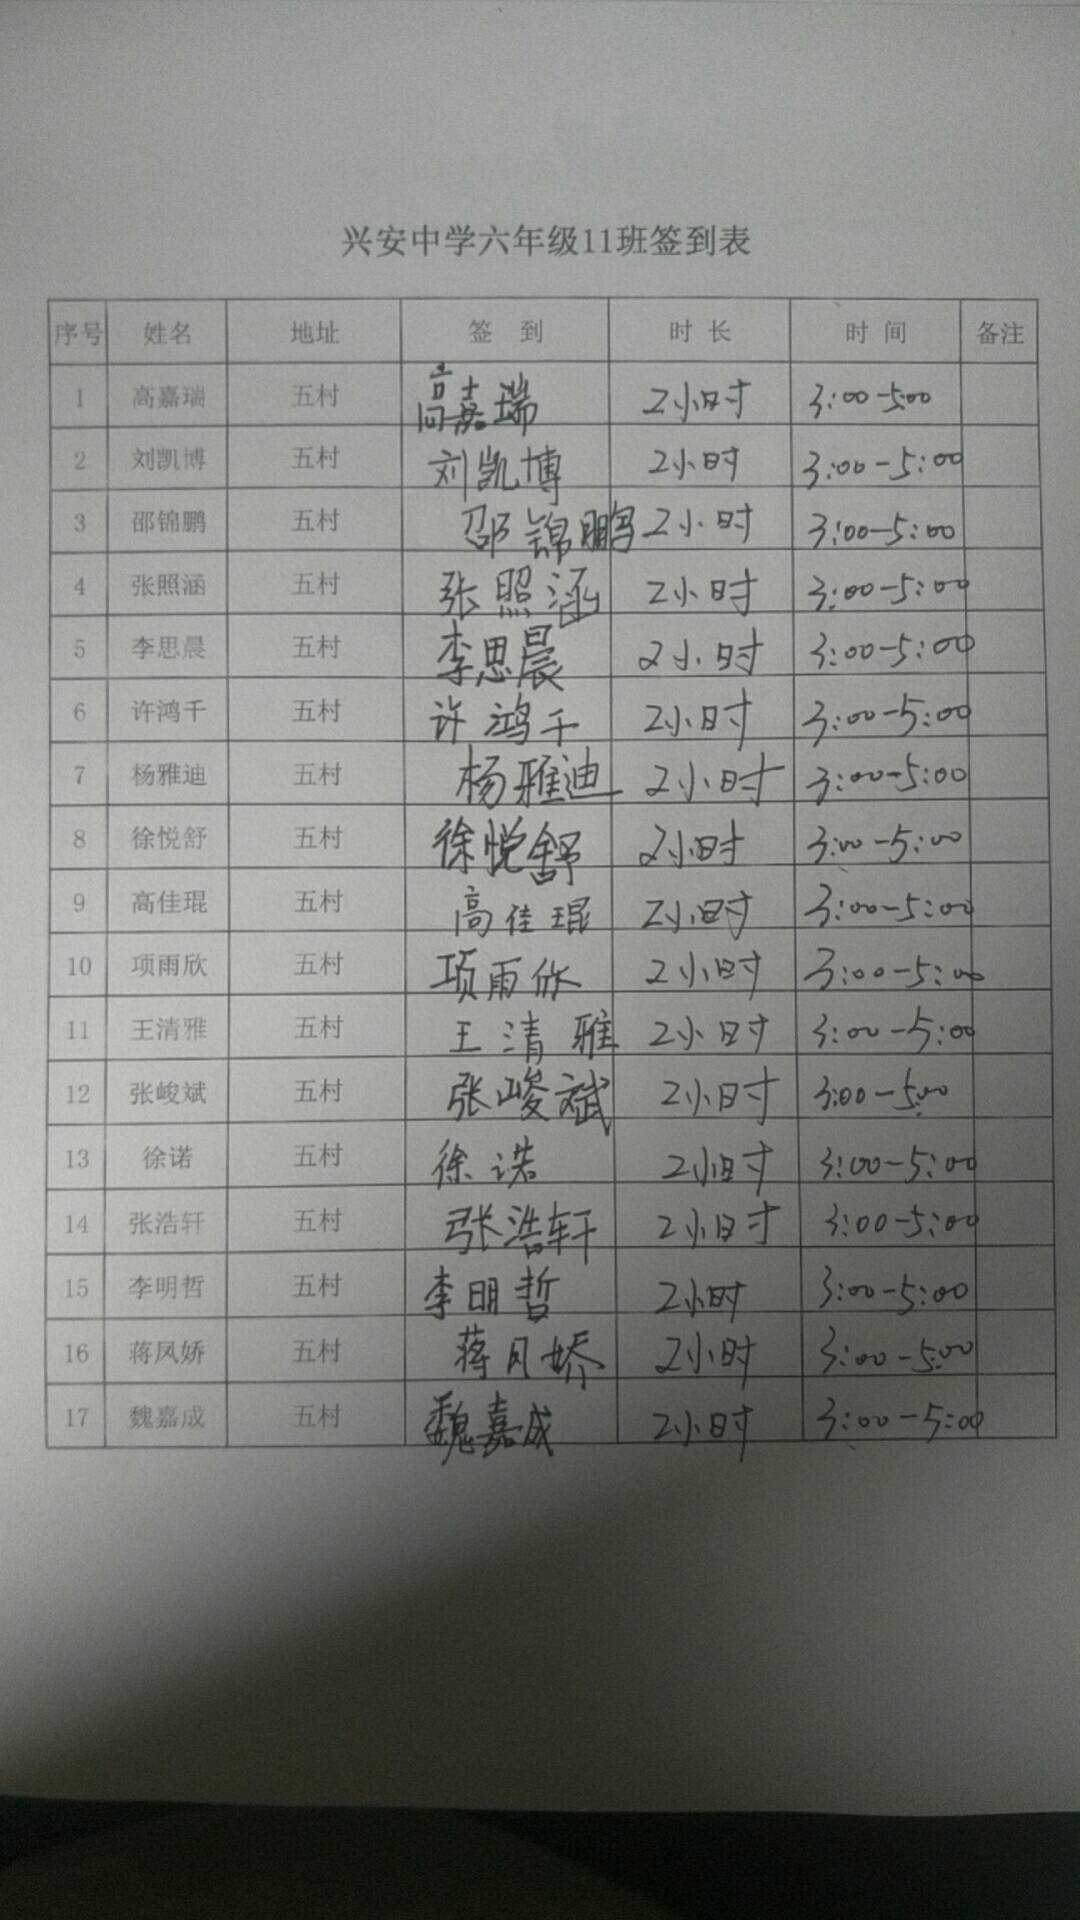 兴安中学六年级11班签到表
序号 姓名 地址 签 到 时 长 时 间 备注
1 高嘉瑞 五村 高嘉瑞 2小时 3:00-5:00
2 刘凯博 五村 刘凯博 2小时 3:00-5:00
3 邵锦鹏 五村 邵锦鹏 2小时 3:00-5:00
4 张照涵 五村 张照涵 2小时 3:00-5:00
5 李思晨 五村 李思晨 2小时 3:00-5:00
6 许鸿千 五村 许鸿千 2小时 3:00-5:00
7 杨雅迪 五村 杨雅迪 2小时 3:00-5:00
8 徐悦舒 五村 徐悦舒 2小时 3:00-5:00
9 高佳琨 五村 高佳琨 2小时 3:00-5:00
10 项雨欣 五村 项雨欣 2小时 3:00-5:00
11 王清雅 五村 王清雅 2小时 3:00-5:00
12 张峻斌 五村 张峻斌 2小时 3:00-5:00
13 徐诺 五村 徐诺 2小时 3:00-5:00
14 张浩轩 五村 张浩轩 2小时 3:00-5:00
15 李明哲 五村 李明哲 2小时 3:00-5:00
16 蒋凤娇 五村 蒋凤娇 2小时 3:00-5:00
17 魏嘉成 五村 魏嘉成 2小时 3:00-5:00